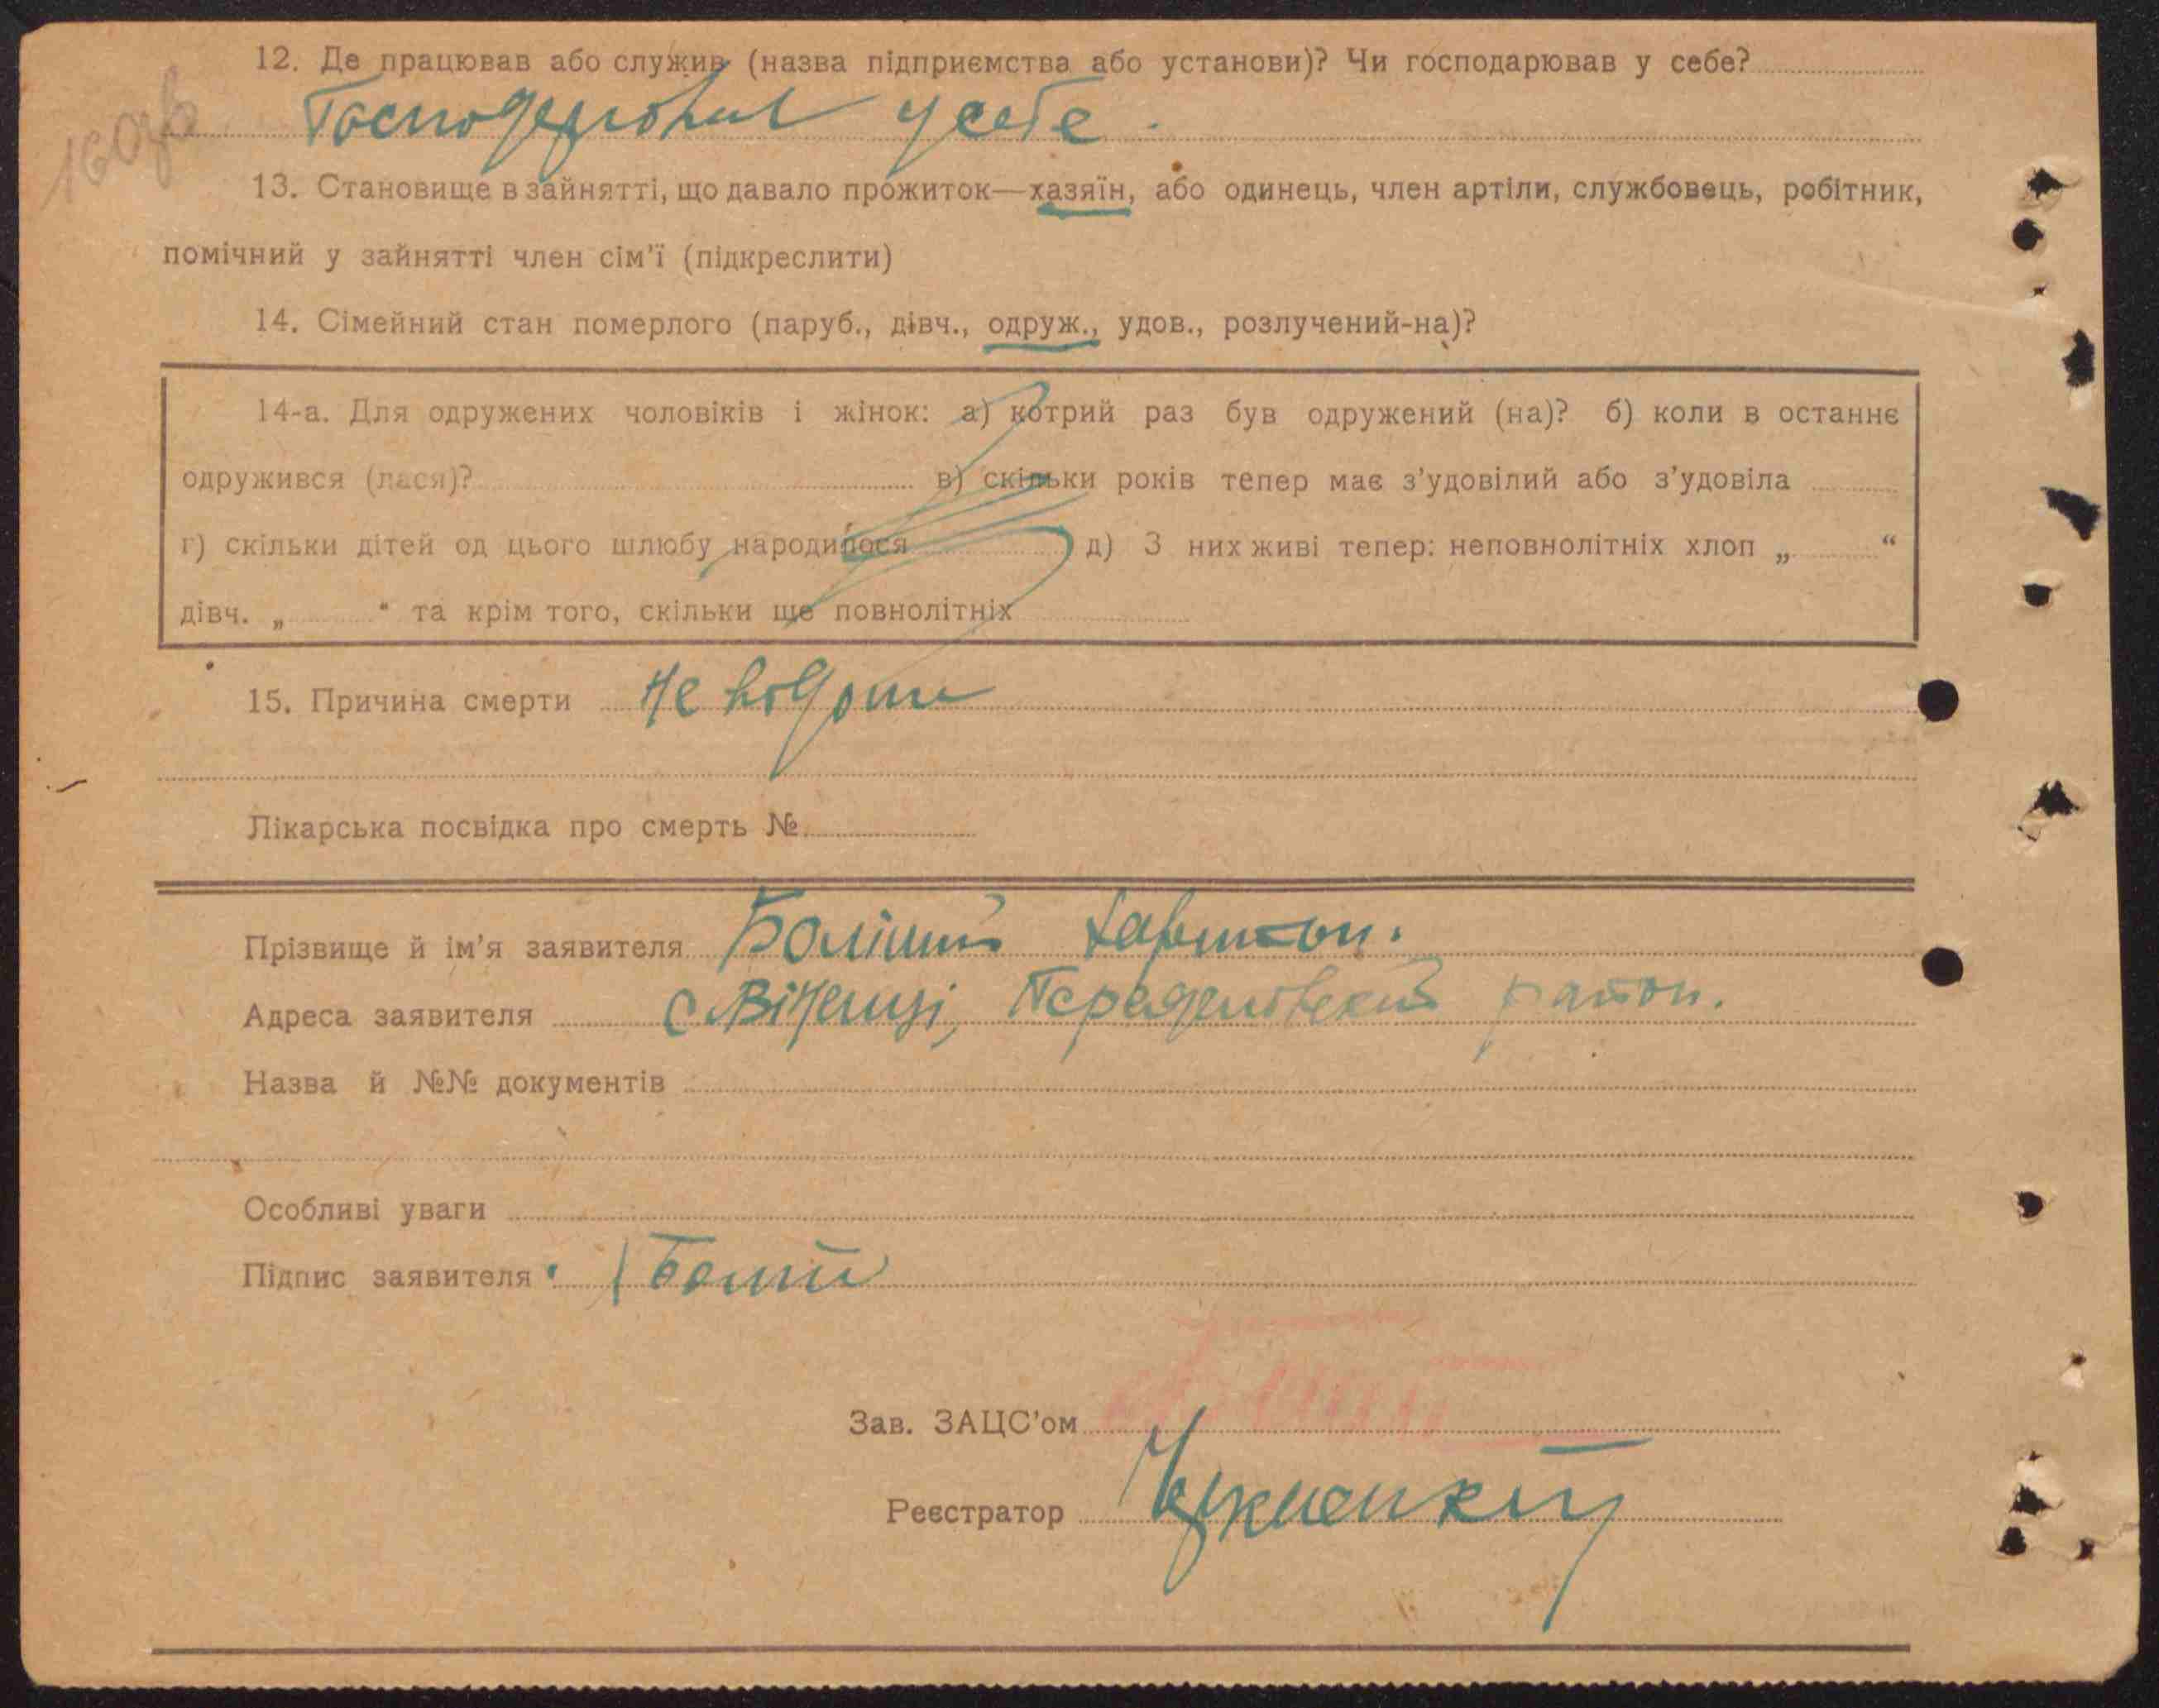 16 об
12. Де працював або служив (назва підприємства або установи)? Чи господарював у себе?
Господарював у себе.
13. Становище в зайнятті, що давало прожиток—хазяїн, або одинець, член артіли, службовець, робітник,
помічний у зайнятті член сім'ї (підкреслити)
14. Сімейний стан померлого (паруб., дівч., одруж., удов., розлучений-на)?
14-а. Для одружених чоловіків і жінок: а) котрий раз був одружений (на)? б) коли в останнє
одружився (лася)? в) скільки років тепер має з'удовілий або з'удовіла
г) скільки дітей од цього шлюбу народилося д) З них живі тепер: неповнолітніх хлоп „ “
дівч. „ “ та крім того, скільки ще повнолітніх
15. Причина смерти Невідоми
Лікарська посвідка про смерть №
Прізвище й ім'я заявителя
Адреса заявителя с Віненці, район.
Назва й №№ документів
Особливі уваги
Підпис заявителя
Зав. ЗАЦС'ом
Реєстратор